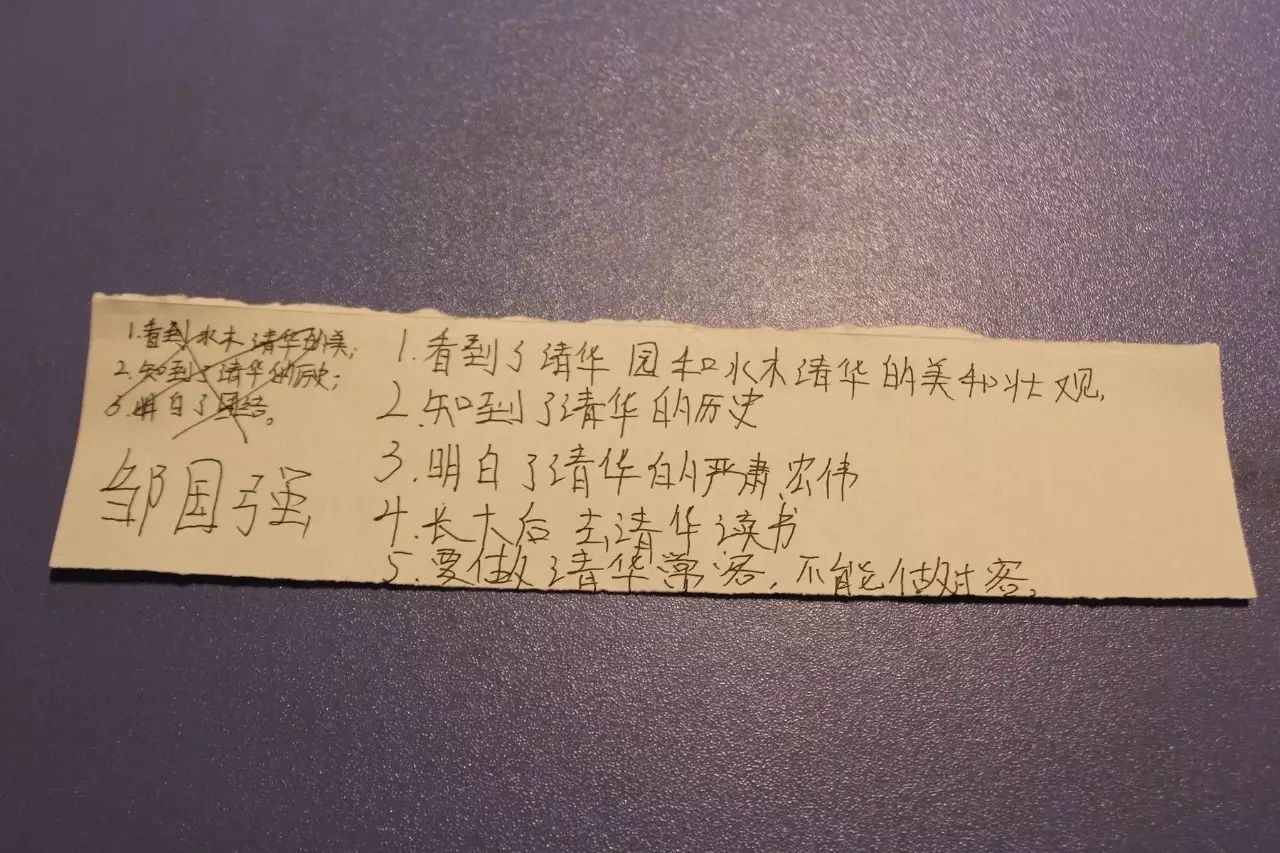 1.看到水木清华的美;
2.知到了清华的历史;
3.明白了团结。
邹国强
1.看到了清华园和水木清华的美和壮观.
2.知到了清华的历史
3.明白了清华的严肃、宏伟
4.长大后去清华读书
5.要做清华常客,不能做过客。